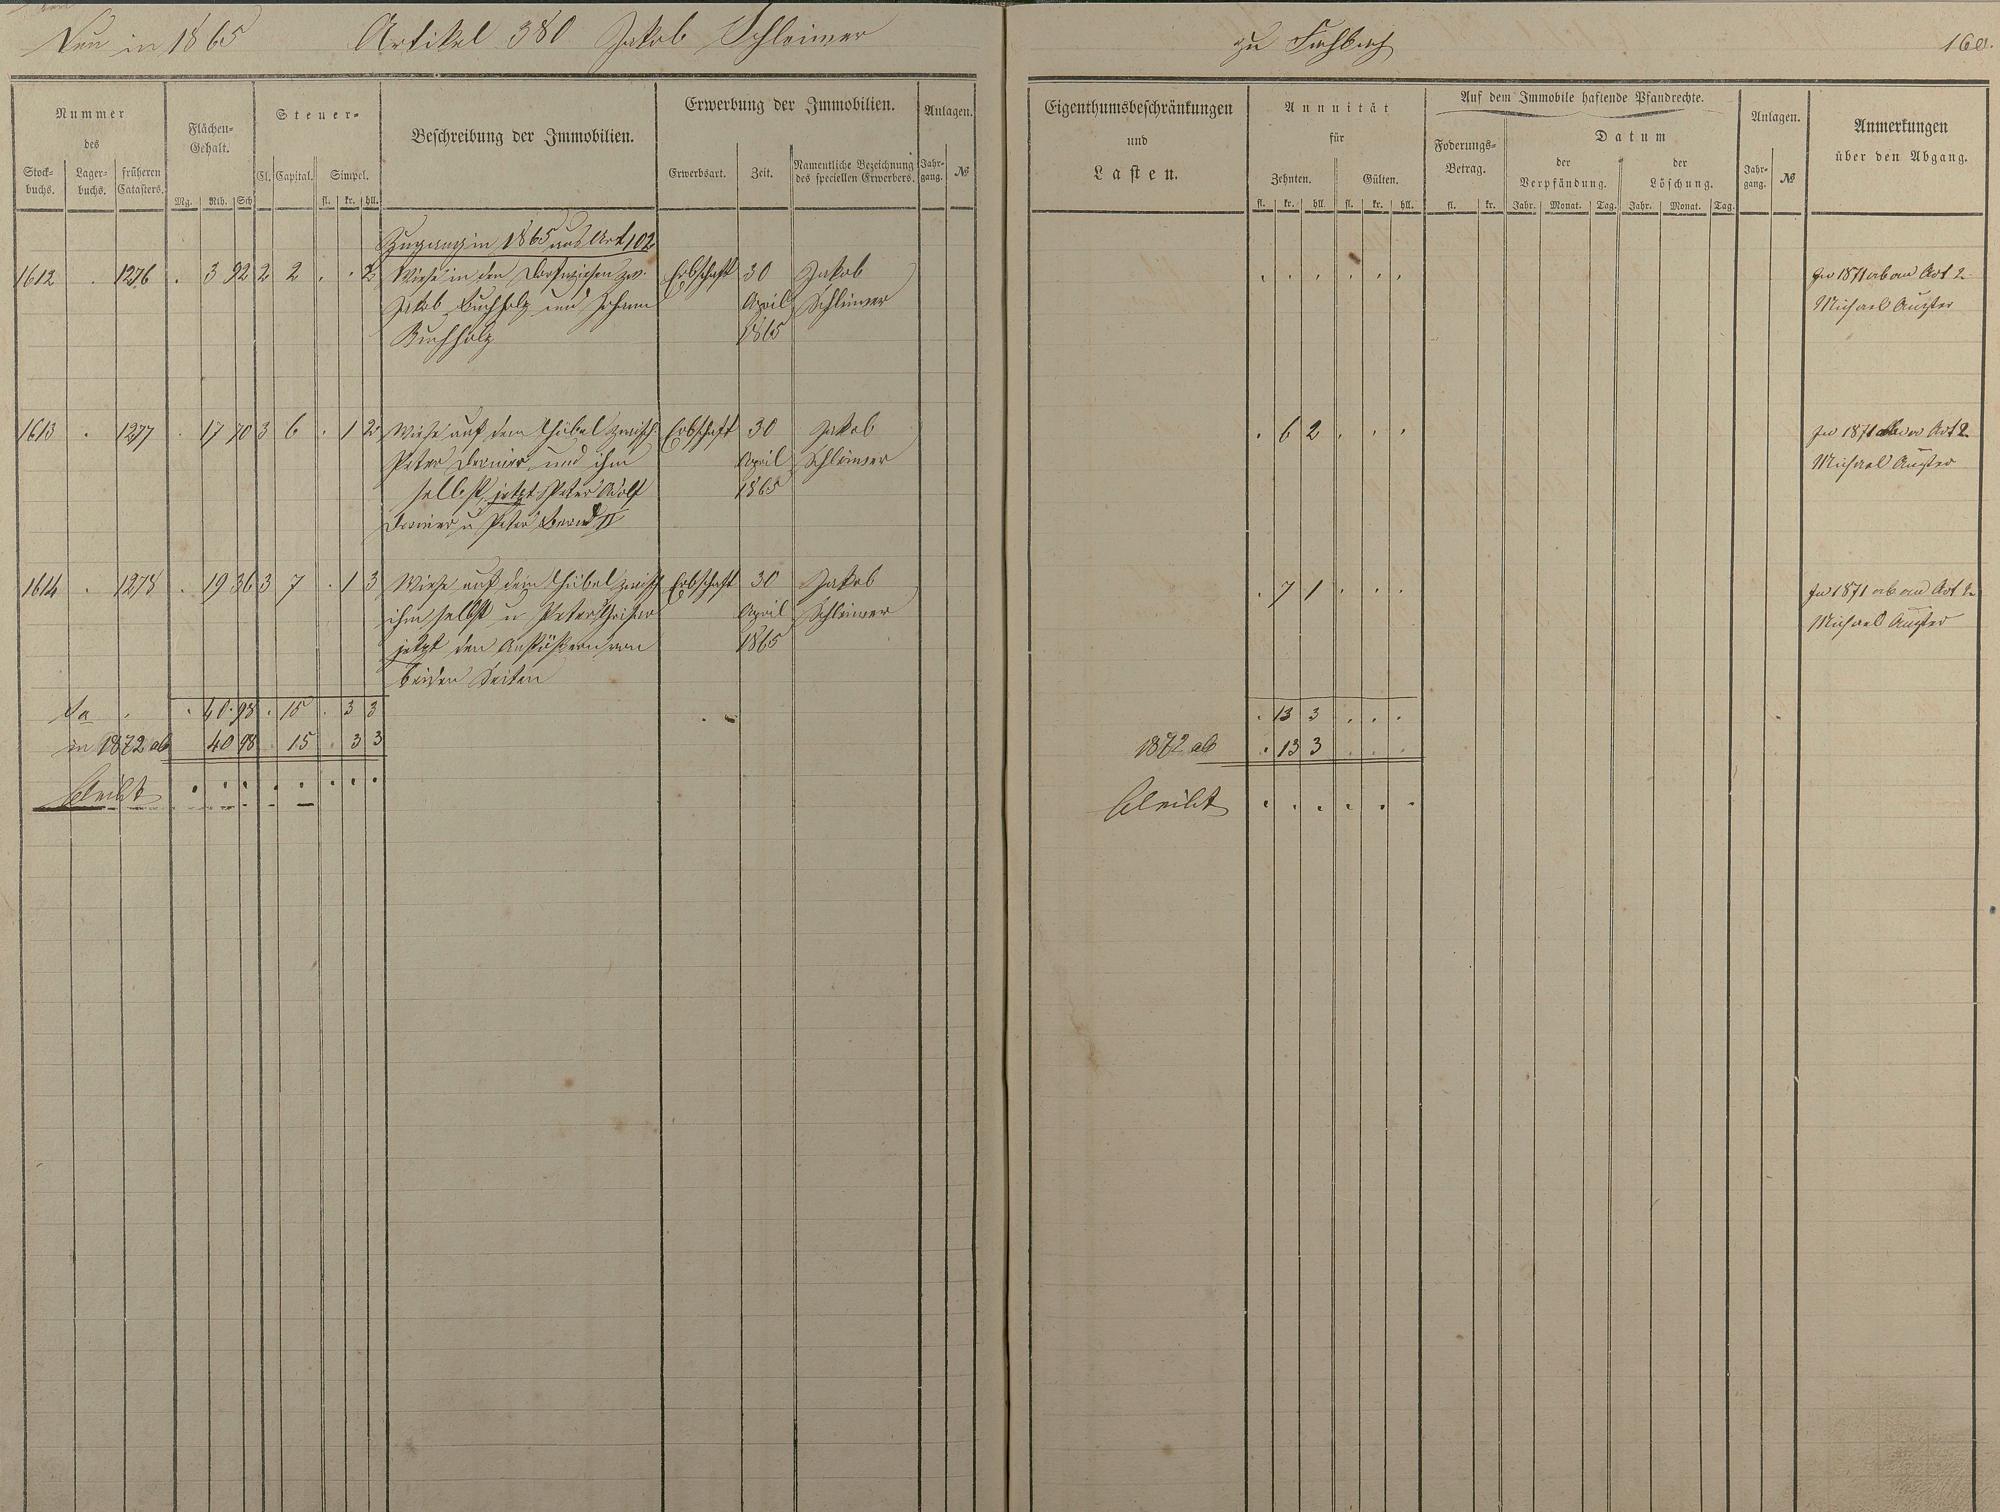 Neu in 1865 Artikel 380 Jakob Schleimer
zu Fachbach 160.
Nummer
des
Stock-buchs. Lager-buchs. früheren Catasters.
Flächen-Gehalt.
Mg. Rth. Sch.
Steuer-
Cl. Capital. Simpel.
fl. kr. hll.
Beschreibung der Immobilien.
Erwerbung der Immobilien.
Erwerbsart. Zeit. Namentliche Bezeichnung des speciellen Erwerbers.
Anlagen.
Jahr-gang. №
Eigenthumsbeschränkungen
und
Lasten.
Annuität
für
Zehnten. Gülten.
fl. kr. hll. fl. kr. hll.
Auf dem Immobile haftende Pfandrechte.
Foderungs-Betrag.
fl. kr.
Datum
der Verpfändung. der Löschung.
Jahr. Monat. Tag. Jahr. Monat. Tag.
Anlagen.
Jahr-gang. №
Anmerkungen
über den Abgang.
Zugang in 1865 aus Art 102
1612 . 1276 . 3 92 2 2 . . 2 Wiese in den Dorfwiesen zw. Erbschaft 30 Jakob
Jakob Buchholz und Johann April Schleimer
Buchholz 1865
. . . . . . In 1871 ab an Art 2
Michael Augster
1613 . 1277 . 17 70 3 6 . 1 2 Wiese auf dem Hübel zwisch. Erbschaft 30 Jakob
Peter und ihm April Schleimer
selbst, jetzt Peter Adolf 1865
u Peter II
. 6 2 . . . In 1871 Art 2
Michael Augster
1614 . 1278 . 19 36 3 7 . 1 3 Wiese auf dem Hübel zwisch Erbschaft 30 Jakob
ihm selbst u Peter April Schleimer
jetzt den Anstößern von 1865
beiden Seiten
. 7 1 . . . In 1871 ab an Art 2
Michael Augster
Sa . . 40 98 . 15 . 3 3
. 13 3 . . .
in 1872 ab 40 98 . 15 . 3 3
1872 ab . 13 3 . . .
bleibt . . . . . . . .
bleibt . . . . . .